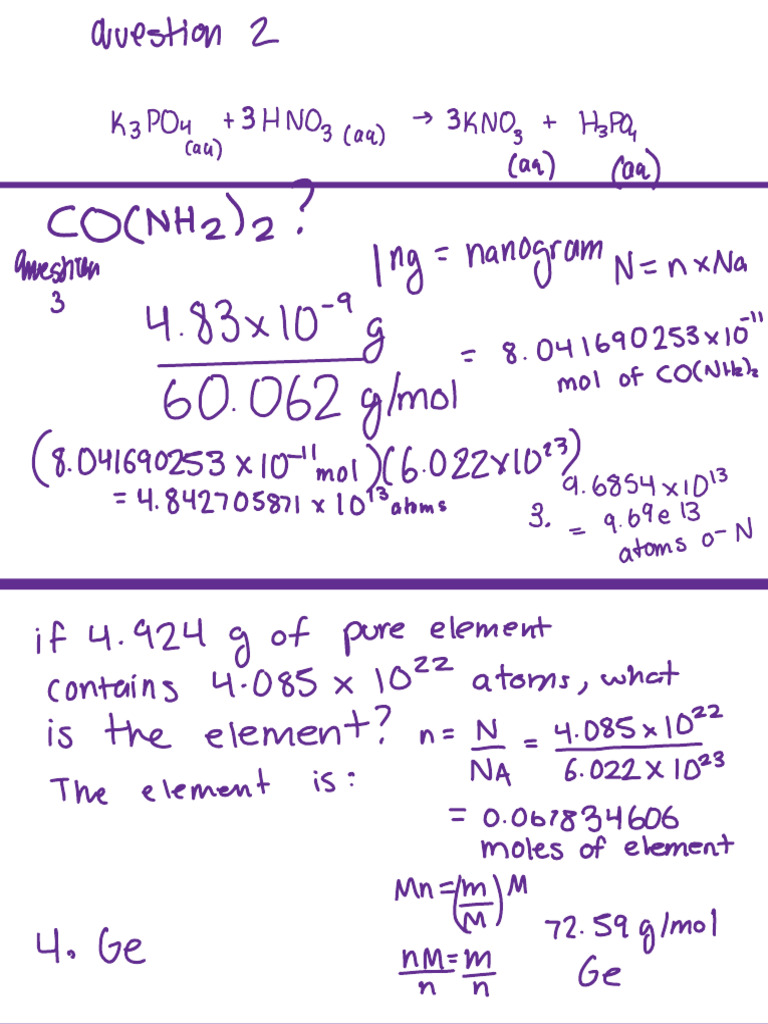 Question 2
K3PO4 (aq) + 3HNO3 (aq) → 3KNO3 (aq) + H3PO4 (aq)
CO(NH2)2?
Question 3
1 ng = nanogram N = n × Na
4.83 × 10⁻⁹ g
60.062 g/mol
= 8.041690253 × 10⁻¹¹
mol of CO(NH2)2
(8.041690253 × 10⁻¹¹ mol)(6.022 × 10²³)
= 4.842705871 × 10¹³ atoms
9.6854 × 10¹³
3. = 9.69e13
atoms o- N
if 4.924 g of pure element
contains 4.085 × 10²² atoms, what
is the element?
The element is:
n = N/NA = 4.085 × 10²² / 6.022 × 10²³
= 0.067834606
moles of element
Mn = (m/M) M
nM/n = m/n
72.59 g/mol
Ge
4. Ge